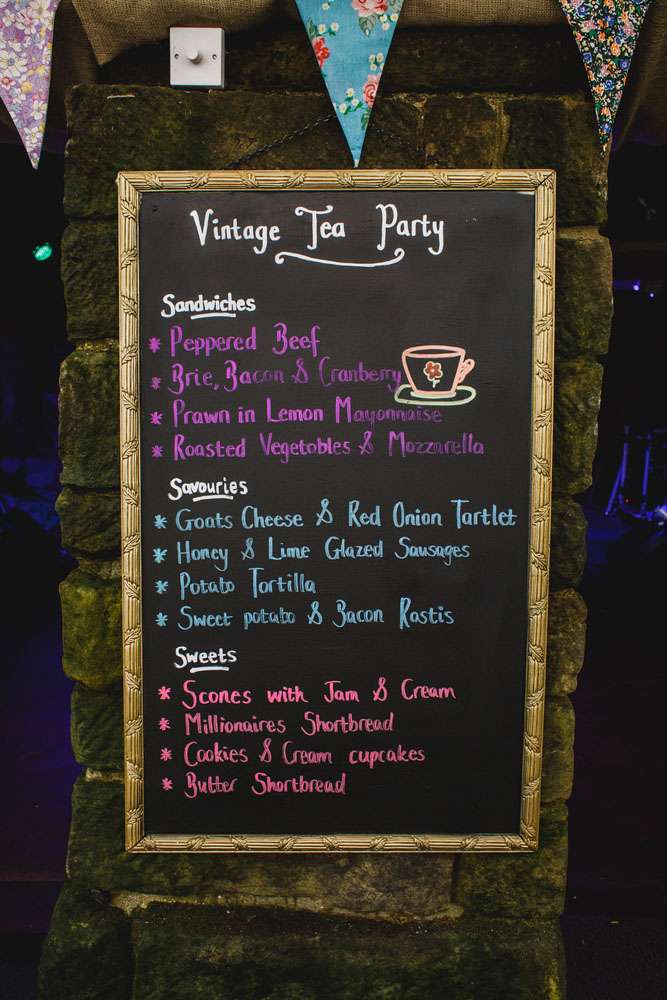 Vintage Tea Party
Sandwiches
* Peppered Beef
* Brie, Bacon & Cranberry
* Prawn in Lemon Mayonnaise
* Roasted Vegetables & Mozzarella
Savouries
* Goats Cheese & Red Onion Tartlet
* Honey & Lime Glazed Sausages
* Potato Tortilla
* Sweet potato & Bacon Rostis
Sweets
* Scones with Jam & Cream
* Millionaires Shortbread
* Cookies & Cream cupcakes
* Butter Shortbread